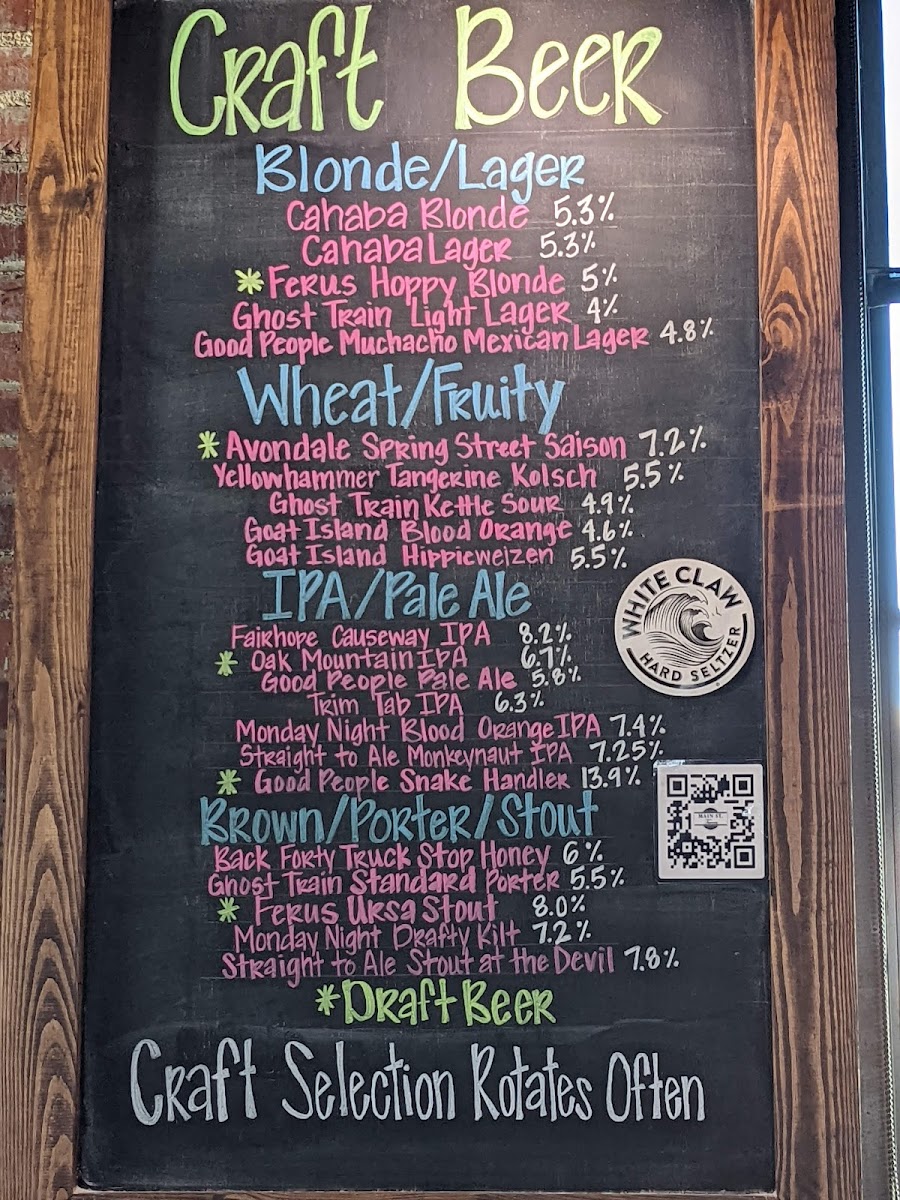 Craft Beer
Blonde/Lager
Cahaba Blonde 5.3%
Cahaba Lager 5.3%
* Ferus Hoppy Blonde 5%
Ghost Train Light Lager 4%
Good People Muchacho Mexican Lager 4.8%
Wheat/Fruity
* Avondale Spring Street Saison 7.2%
Yellowhammer Tangerine Kolsch 5.5%
Ghost Train Kettle Sour 4.9%
Goat Island Blood Orange 4.6%
Goat Island Hippieweizen 5.5%
IPA/Pale Ale
Fairhope Causeway IPA 8.2%
* Oak Mountain IPA 6.7%
Good People Pale Ale 5.8%
Trim Tab IPA 6.3%
Monday Night Blood Orange IPA 7.4%
Straight to Ale Monkeynaut IPA 7.25%
* Good People Snake Handler 13.9%
WHITE CLAW
HARD SELTZER
MAIN ST.
Brown/Porter/Stout
Back Forty Truck Stop Honey 6%
Ghost Train Standard Porter 5.5%
* Ferus Ursa Stout 8.0%
Monday Night Drafty Kilt 7.2%
Straight to Ale Stout at the Devil 7.8%
*Draft Beer
Craft Selection Rotates Often